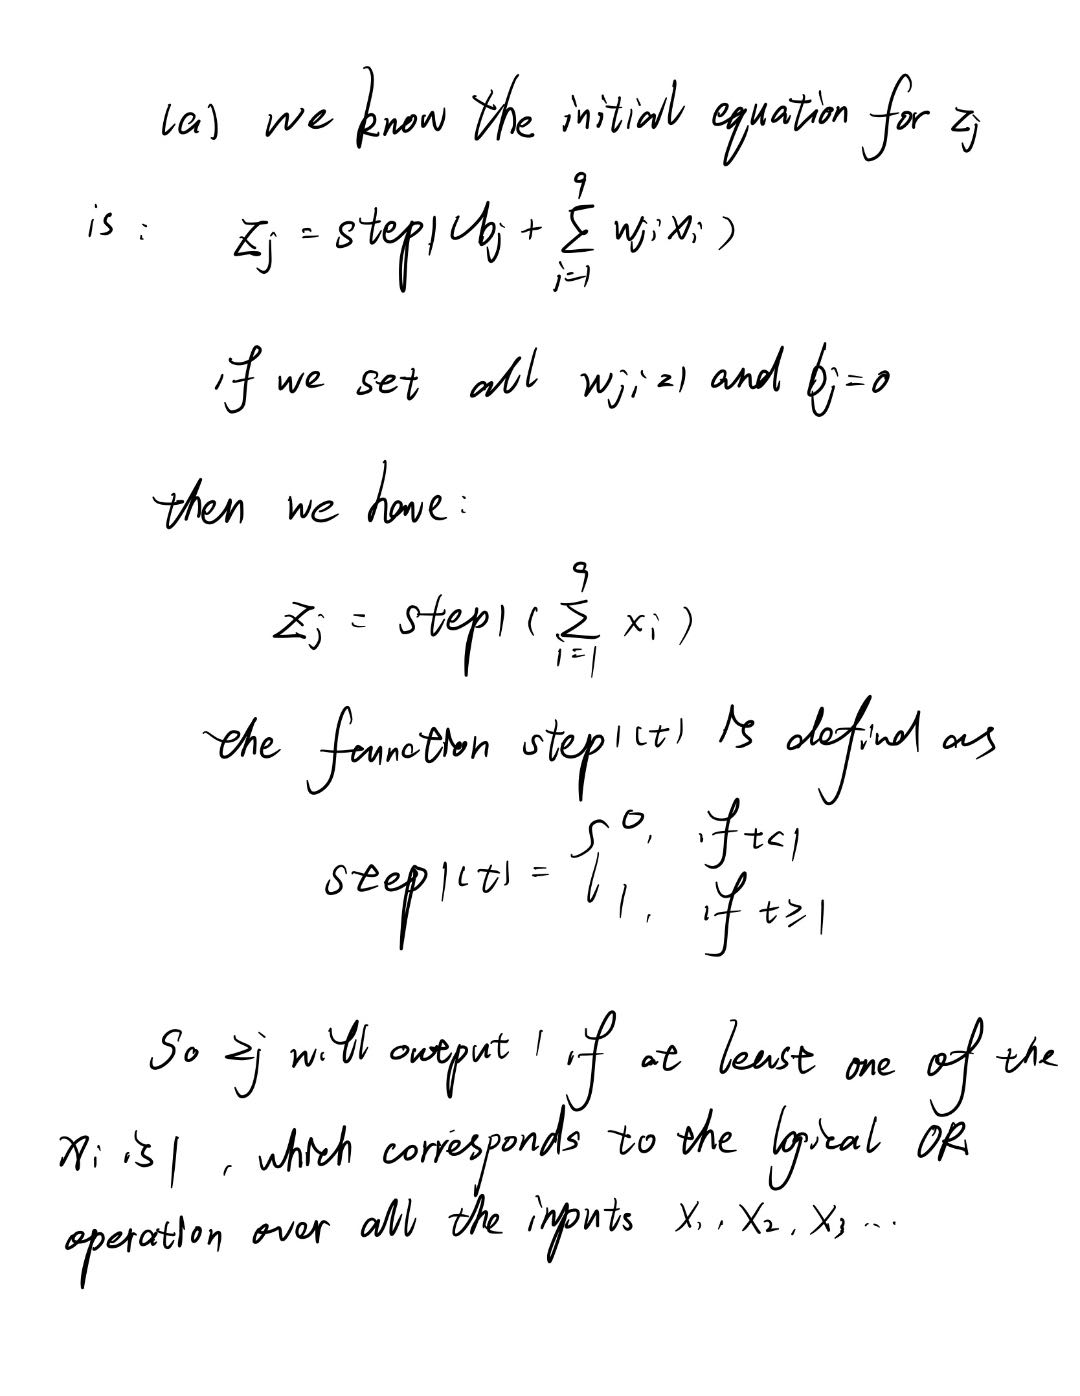 (a) we know the initial equation for zj
is : Zj = step1(bj + 9∑i=1 wjixi)
if we set all wji=1 and bj=0
then we have:
Zj = step1(9∑i=1 xi)
the function step1(t) is defind as
step1(t) = { 0, if t<1
1, if t≥1
So zj will output 1 if at least one of the
xi is 1, which corresponds to the logical OR
operation over all the inputs X1, X2, X3 ...